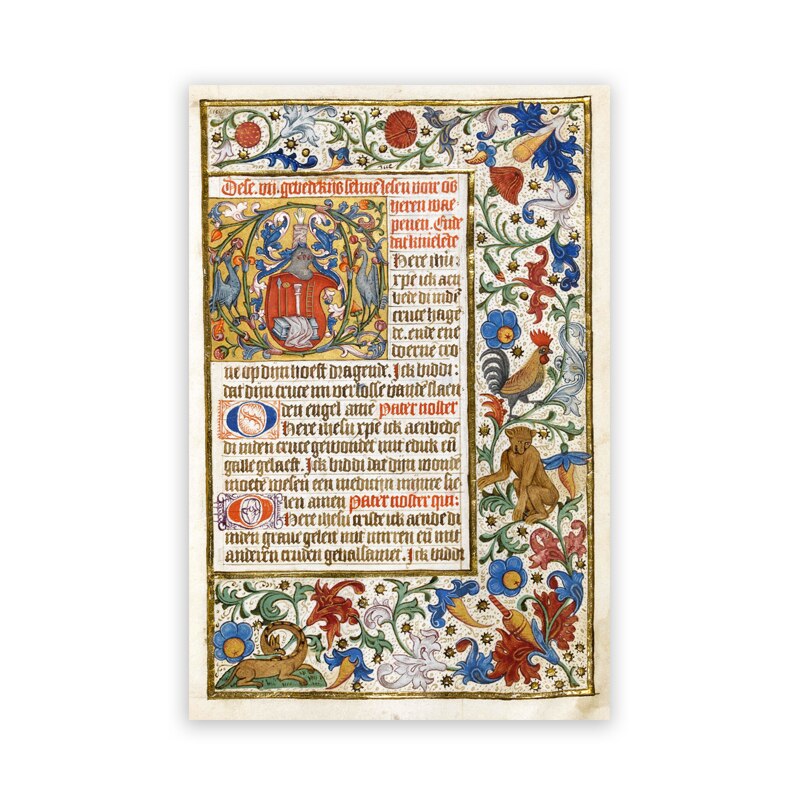 Dese .vij. gebedekijs selme lesen voir os
heren wae
penen. Ende
dat knielēde
Here ihu
xpe ick aen
bede di inde
cruce hagē
de. ende ene
doerne cro
ne op dijn hoeft dragende. Ick biddi
dat dijn cruce mi verlosse vandē slaen
den engel amē Pater noster
O Here ihesu xpe ick aenbede
di inden cruce gewondet mit edick eñ
galle gelaeft. Ick biddi dat dijn wonde
moete wesen een medicijn mijnre sie
len amen Pater noster qui:
O Here ihesu criste ick aenbe di
inden graue geleit mit mirren eñ mit
anderen cruden gebalsamet. Ick biddi